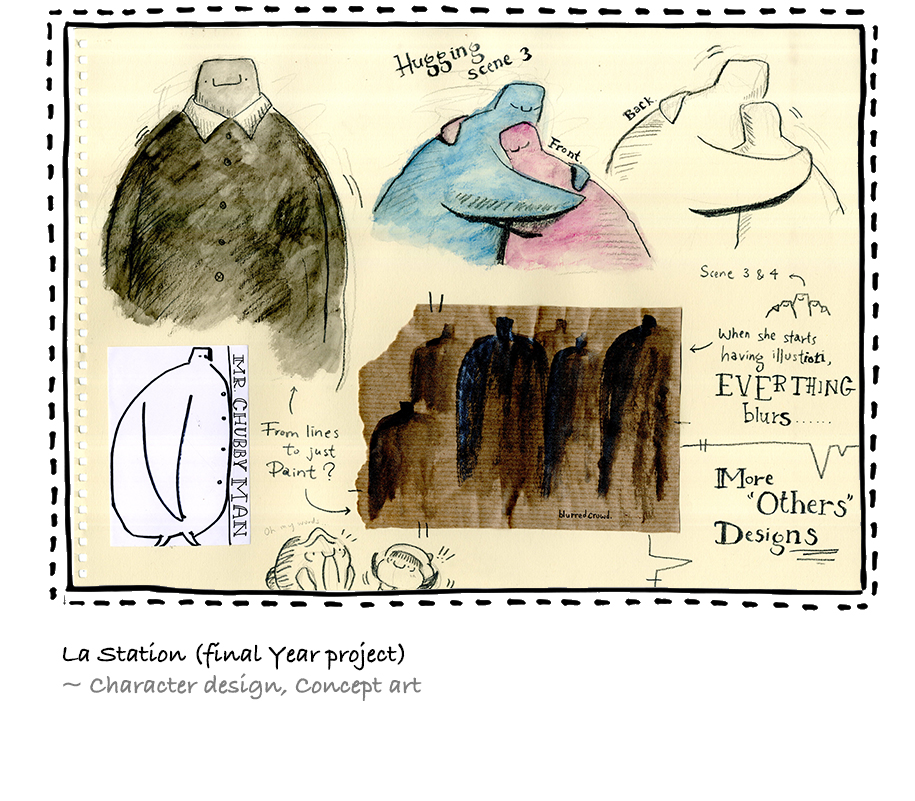 Hugging
scene 3
Back.
Front
Scene 3 & 4
When she starts
having illustioti,
EVERTHING
blurs......
MR. CHUBBY MAN
From lines
to just
Paint?
blurred crowd.
More
"Others"
Designs
Oh my words
La Station (final Year project)
~ Character design, Concept art